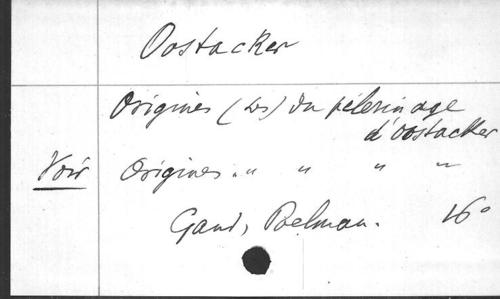 Oostacker
Origines (Les) du pélerinage
d'oostacker
Voir Origines " " " "
Gand, Poelman. 16°